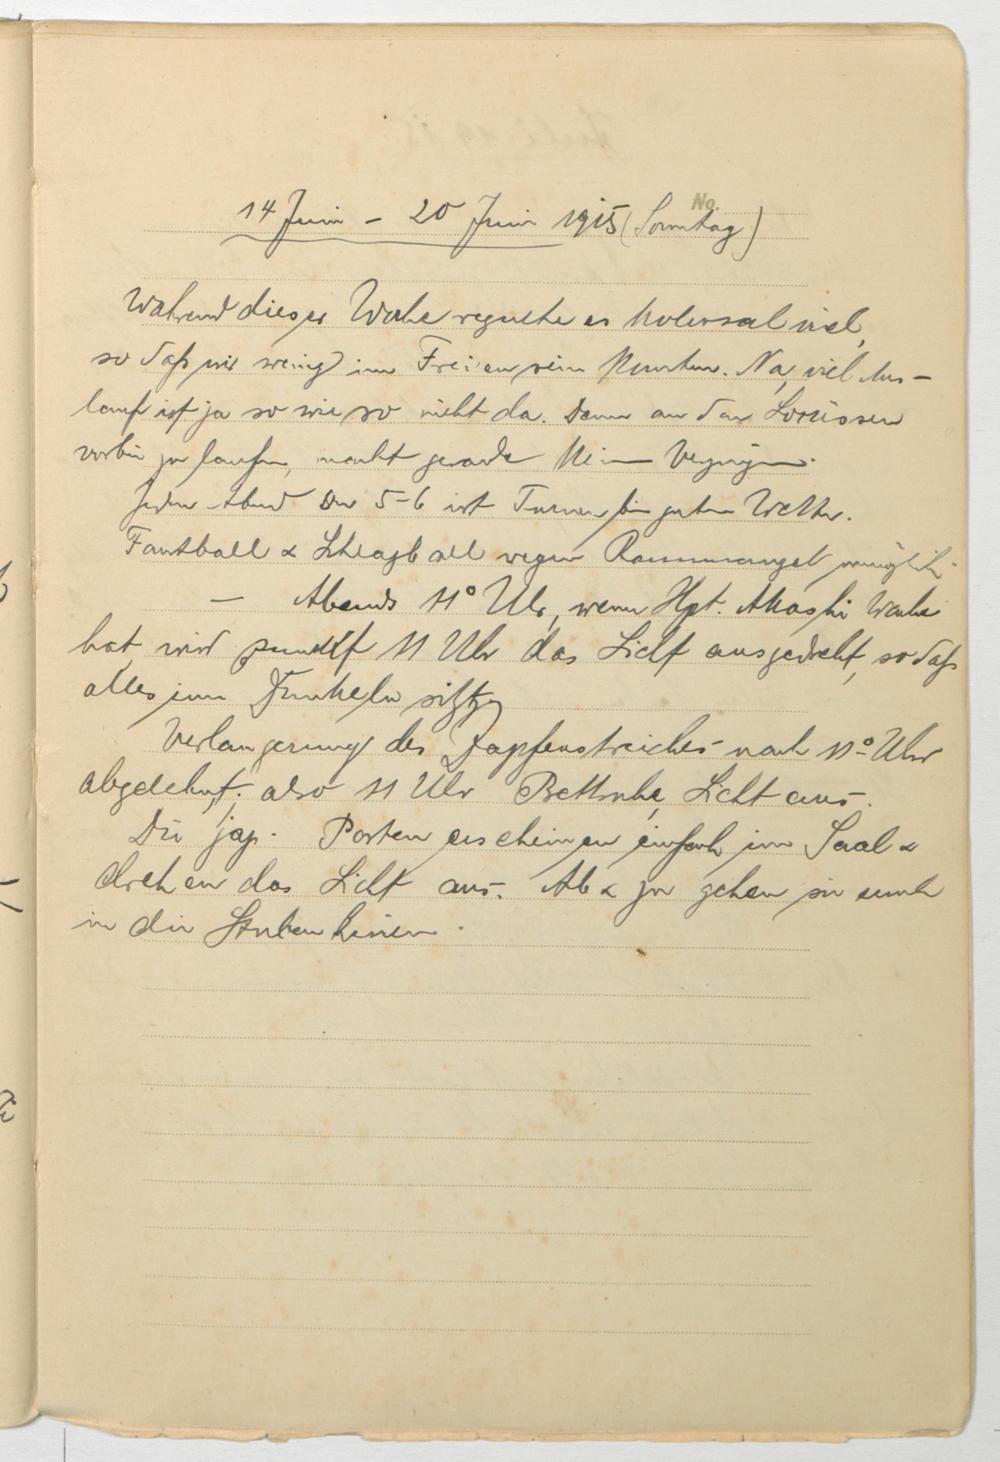 14 Juni - 20 Juni 1915 (Sonntag)
No.
Während dieser Woche regnete es kolossal viel,
so daß wir wenig im Freien sein konnten. Na, viel Aus-
lauf ist ja so wie so nicht da. Denn an den
vorbei zu laufen, macht gerade kein Vergnügen.
Jeden Abend von 5-6 ist Turnen bei gutem Wetter.
Faustball & Schlagball wegen Raummangel unmöglich.
— Abends 11° Uhr, wenn Hpt. Akashi Wache
hat, wird punkt 11 Uhr das Licht ausgedreht, so daß
alles im Dunkeln sitzt.
Verlangerung des Zapfenstreiches nach 11° Uhr
abgelehnt; also 11 Uhr Bettruhe, Licht aus.
Die jap. Posten erscheinen einfach im Saal &
drehen das Licht aus. Ab & zu gehen sie auch
in die Stuben hinein.